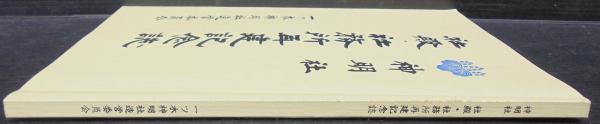 神明社
社殿・社務所再建記念誌
一ツ木神明社造営委員会
神明社
社殿・社務所再建記念誌
一ツ木神明社造営委員会